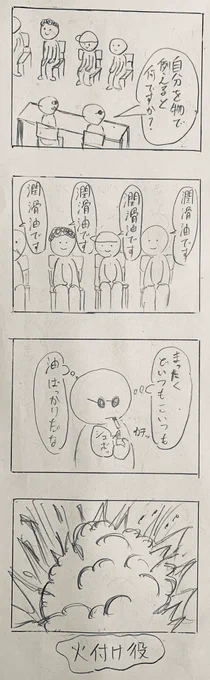 自分を物で
例えると
何ですか?
潤滑油です
潤滑油です
潤滑油です
潤滑油です
まったく
どいつもこいつも
カチッ
油ばっかりだな
火付け役